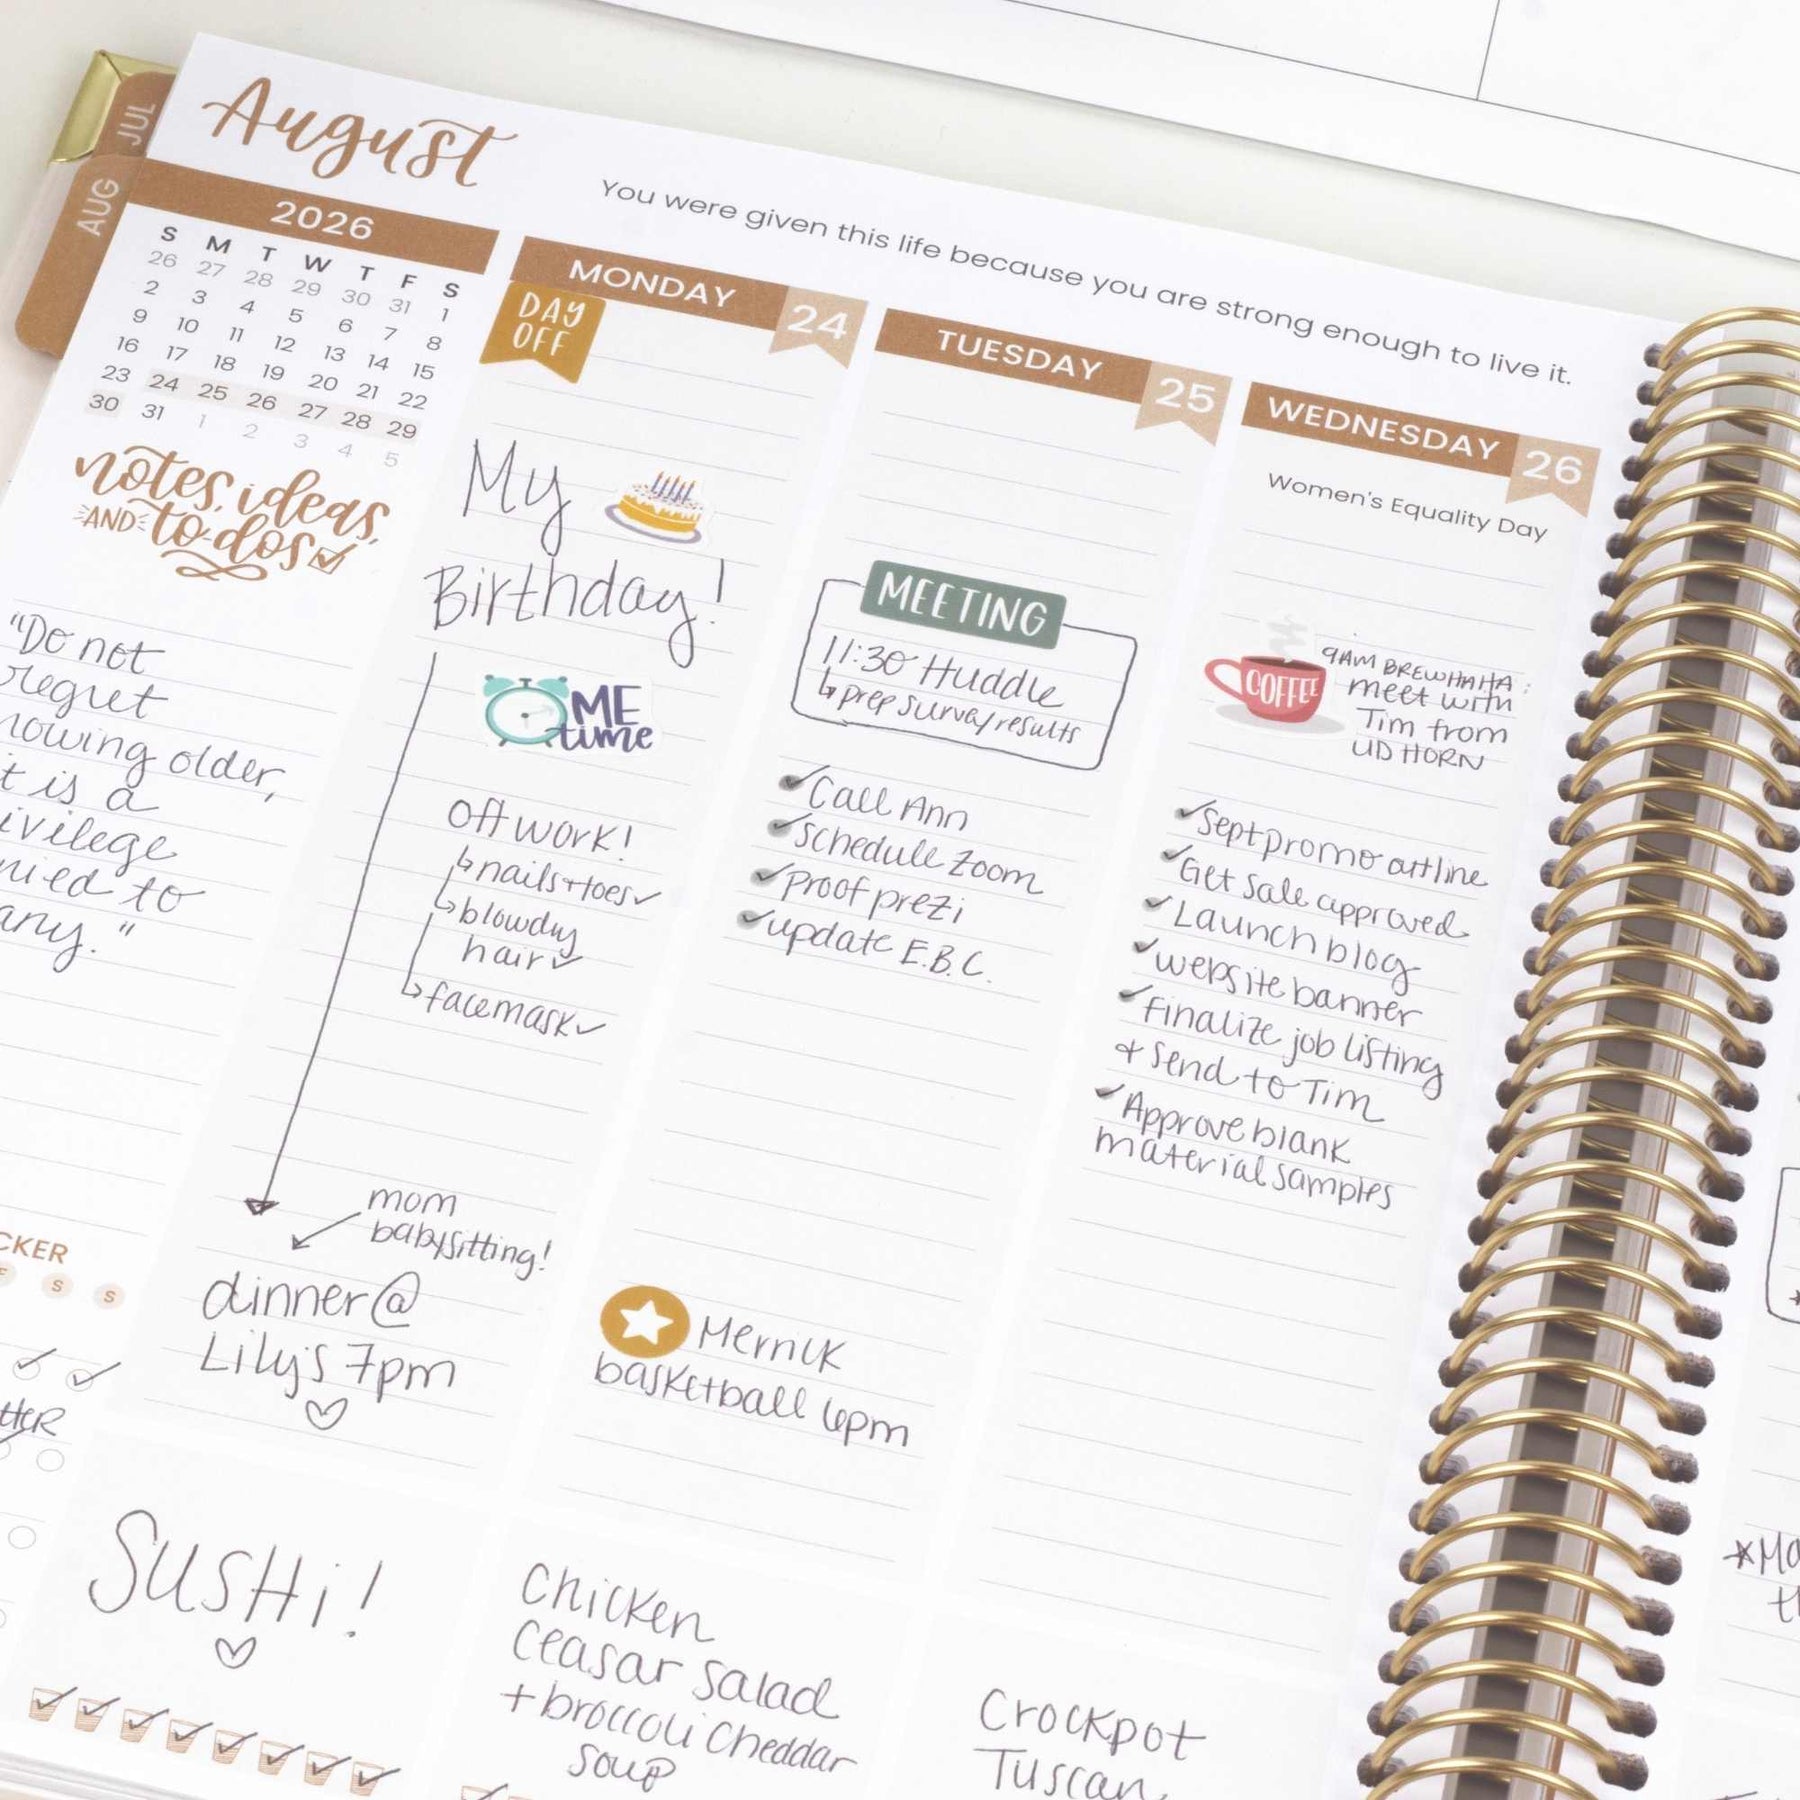 JUL
AUG
August
You were given this life because you are strong enough to live it.
2026
S M T W T F S
26 27 28 29 30 31 1
2 3 4 5 6 7 8
9 10 11 12 13 14 15
16 17 18 19 20 21 22
23 24 25 26 27 28 29
30 31 1 2 3 4 5
notes, ideas,
AND to-dos
"Do not
regret
older,
is a
to
"
CKER
F S S
MONDAY 24
DAY
OFF
My
Birthday!
ME
time
Off work!
nails + toes
blowdry
hair
facemask
mom
babysitting!
dinner @
Lily's 7pm
SUSHi!
TUESDAY 25
MEETING
11:30 Huddle
prep survey results
Call Ann
Schedule Zoom
Proof prezi
update E.B.C.
Mernick
basketball 6pm
Chicken
Ceasar Salad
+ broccoli Cheddar
Soup
WEDNESDAY 26
Women's Equality Day
COFFEE
9AM BREWHAHA:
meet with
Tim from
UD HORN
Sept promo outline
Get Sale approved
Launch blog
website banner
Finalize job listing
+ send to Tim
Approve blank
material samples
Crockpot
Tuscan